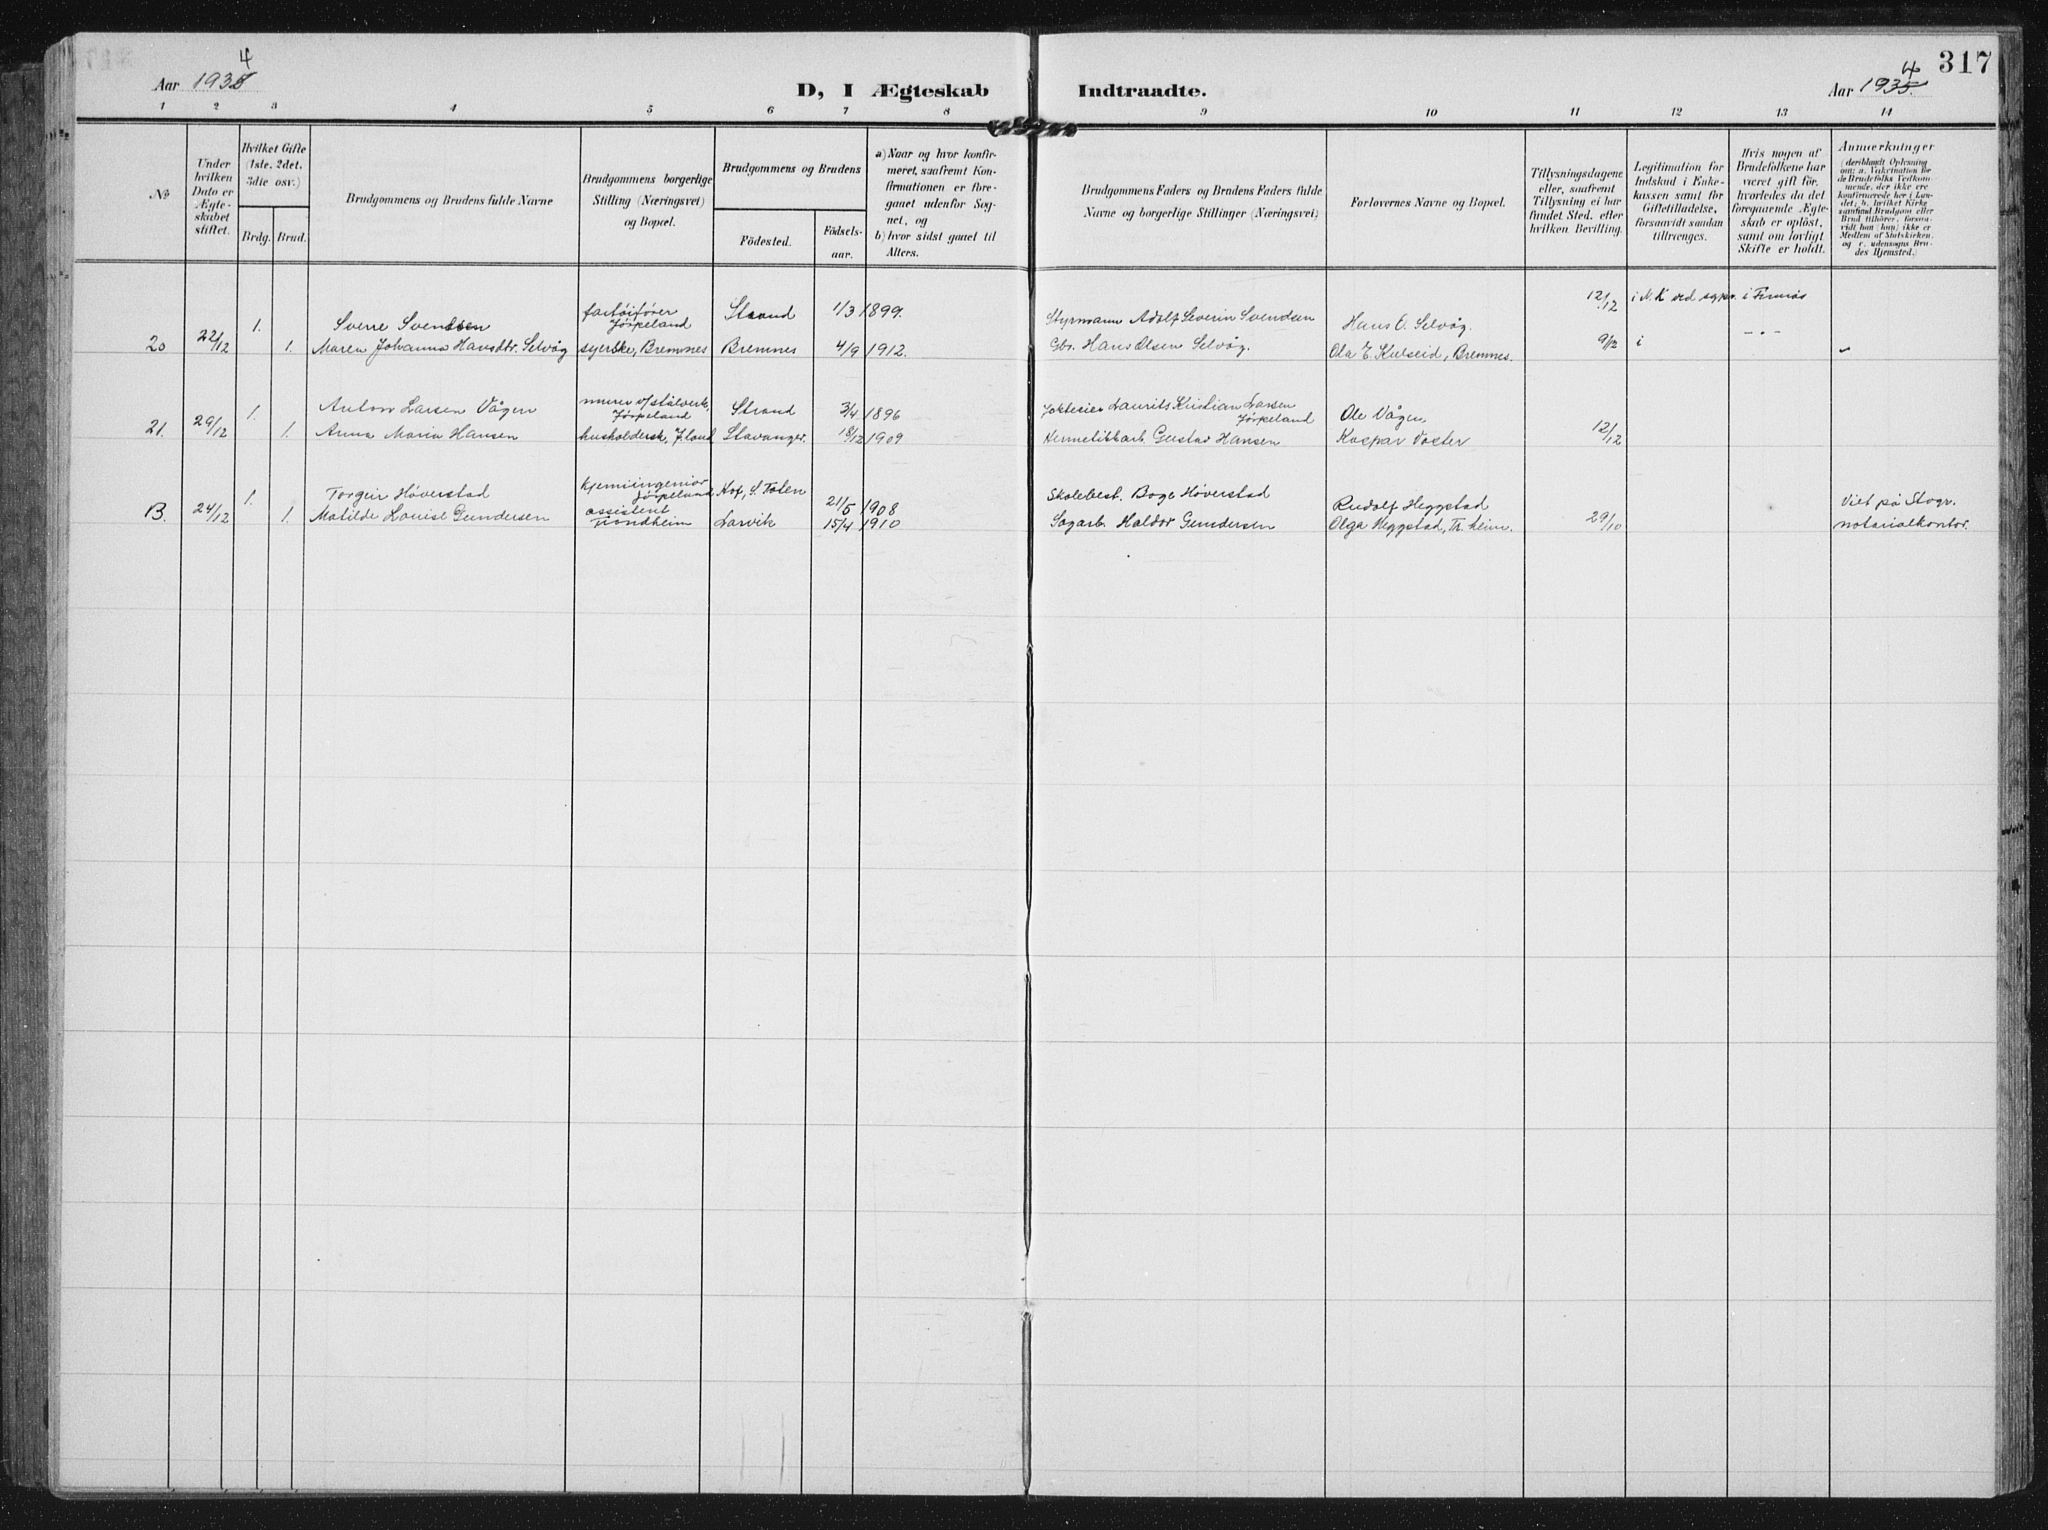 317
Aar 1935 4
D, I Ægteskab Indtraadte.
Aar 1935. 4
1 2 3 4 5 6 7 8 9 10 11 12 13 14
No
Under hvilken Dato er Ægteskabet stiftet.
Hvilket Gifte (1ste, 2det, 3die osv.)
Brdg. Brud.
Brudgommens og Brudens fulde Navne
Brudgommens borgerlige Stilling (Næringsvei) og Bopæl.
Brudgommens og Brudens
Födested.
Födselsaar.
a) Naar og hvor konfirmeret, saafremt Konfirmationen er foregaaet udenfor Sognet, og
b) hvor sidst gaaet til Alters.
Brudgommens Faders og Brudens Faders fulde Navne og borgerlige Stillinger (Næringsvei)
Forlovernes Navne og Bopæl.
Tillysningsdagene eller, saafremt Tillysning ei har fundet Sted, efter hvilken Bevilling.
Legitimation for Indskud i Enkekassen samt for Giftetilladelse, forsaavidt saadan tiltrænges.
Hvis nogen af Brudefolkene har været gift før, hvorledes da det foregaaende Ægteskab er opløst, samt om lovligt Skifte er holdt.
Anmærkninger
(deriblandt Oplysning om: a. Vakcination for de Brudefolks Vedkommende, der ikke ere konfirmerede her i Landet; b. hvilket Kirkesamfund Brudgom eller Brud tilhører, forsaavidt han (hun) ikke er Medlem af Statskirken, og c. udensogns Brudes Hjemsted.)
20 22/12 1. Sverre Svendsen fartøifører Jørpeland Strand 1/3 1899. Styrmann Adolf Severin Svendsen Hans O. Selvåg. 12/12 i N.K ved sgpr. i
1. Maren Johanna Hansdtr. Selvåg syerske, Bremnes Bremnes 4/9 1912. Gbr. Hans Olsen Selvåg. Ola E. Kulseid, Bremnes. 9/12 i - " -
21. 29/12 1. Anton Larsen Vågen murer v/stålverk, Jørpeland Strand 3/4 1896 Laurits Kristian Larsen Jørpeland Ole Vågen
1. Anna Maria Hansen husholdersk, J.land Stavanger. 18/12 1909 Hermetikkarb. Gustav Hansen Kaspar Voster 12/12
B. 24/12 1. Torgeir Høverstad kjemiingeniør Jørpeland Hof, S. Toten 21/5 1908 Skolebest. Boge Høverstad Rudolf Heggstad Viet på Stogr.
1. Matilde Louise Gundersen assistent Trondheim Larvik 15/4 1910 Sagarb. Haldor Gundersen Olga Heggstad, Tr.heim. 29/10 notarialkontor.